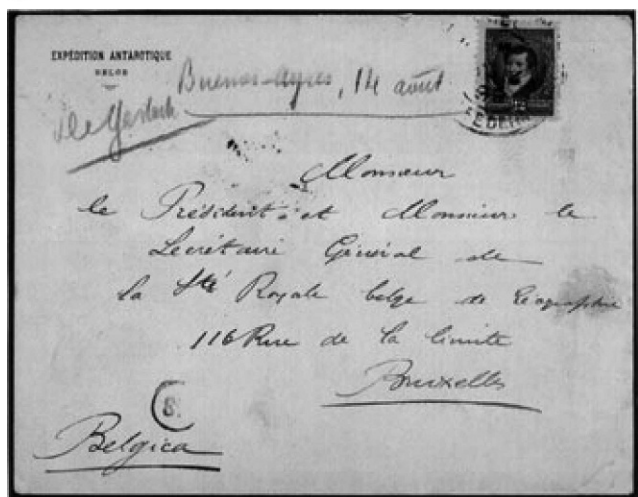 EXPÉDITION ANTARCTIQUE
BELGE
Buenos-Ayres, 14 août
de Gerlache
Monsieur
le Président et Monsieur le
Secrétaire Général de
la Sté Royale belge de Géographie
116 Rue de la limite
Bruxelles
S.
Belgica